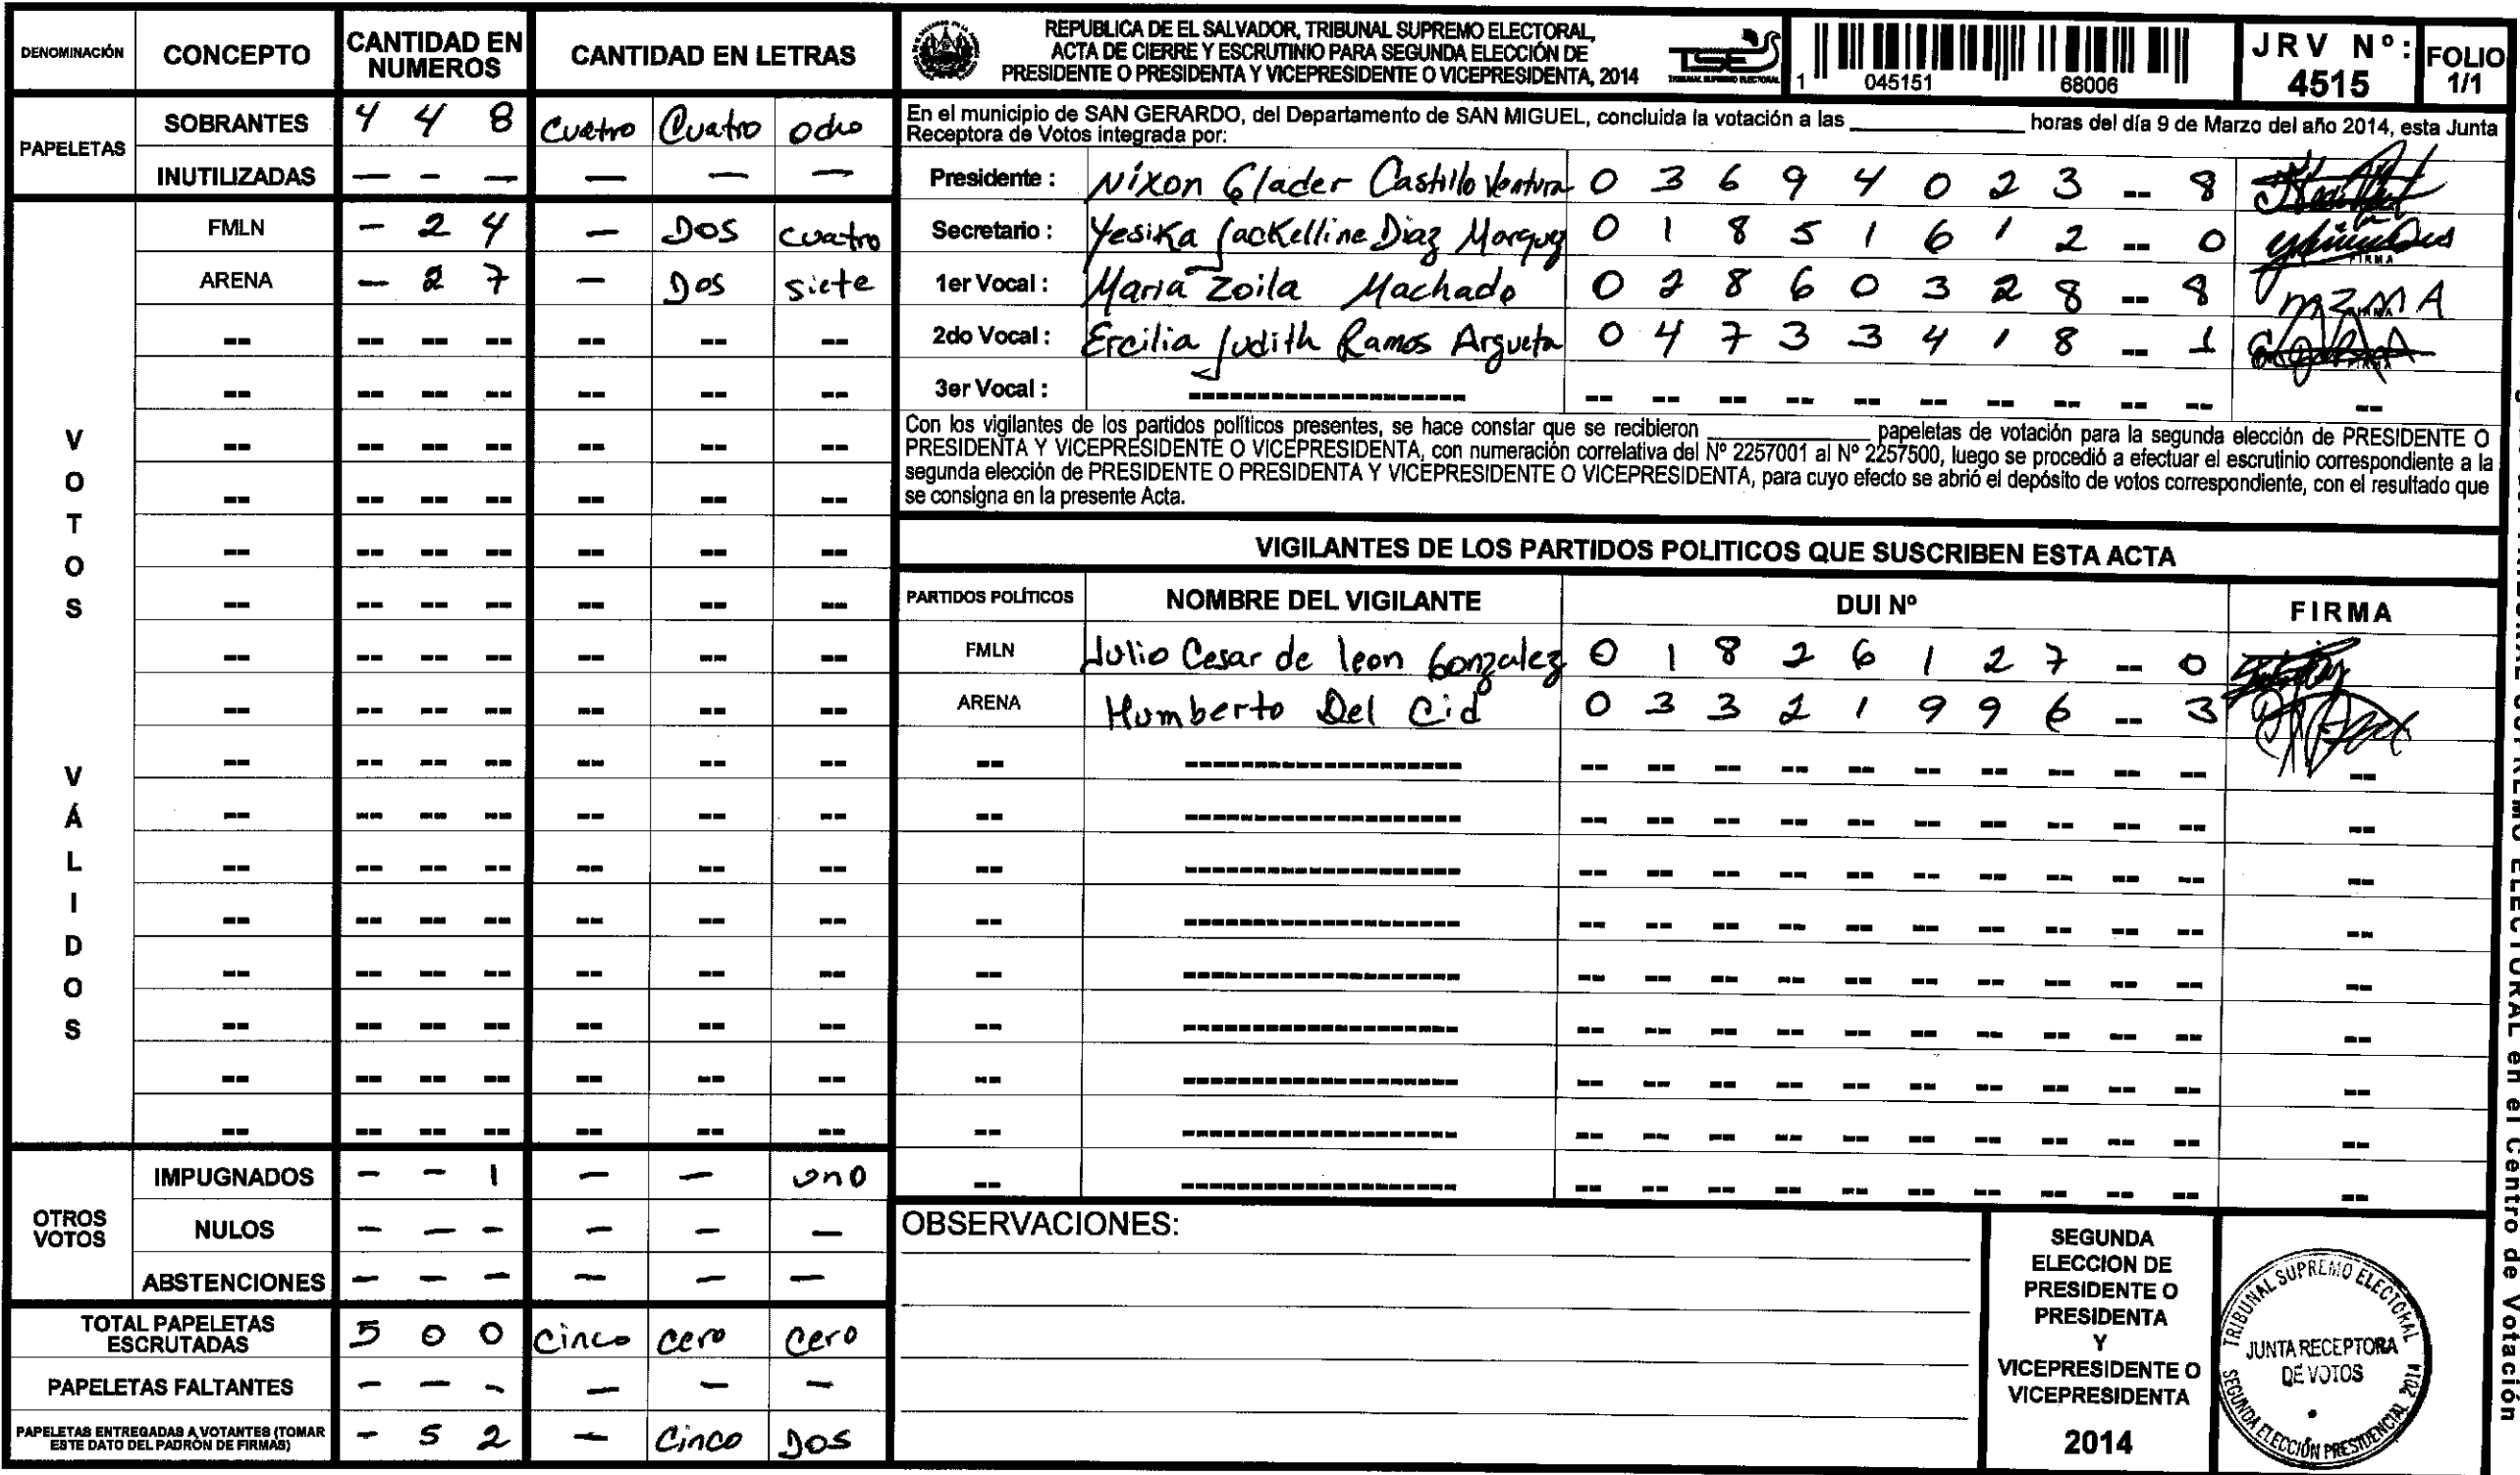 DENOMINACIÓN CONCEPTO CANTIDAD EN NUMEROS CANTIDAD EN LETRAS
PAPELETAS
SOBRANTES 4 4 8 Cuatro Cuatro ocho
INUTILIZADAS — — — — — —
VOTOS VÁLIDOS
FMLN — 2 4 — DOS cuatro
ARENA — 2 7 — DOS siete
OTROS VOTOS
IMPUGNADOS — — 1 — — uno
NULOS — — — — — —
ABSTENCIONES — — — — — —
TOTAL PAPELETAS ESCRUTADAS 5 0 0 Cinco cero cero
PAPELETAS FALTANTES — — — — — —
PAPELETAS ENTREGADAS A VOTANTES (TOMAR ESTE DATO DEL PADRÓN DE FIRMAS) — 5 2 — Cinco DOS
REPUBLICA DE EL SALVADOR, TRIBUNAL SUPREMO ELECTORAL,
ACTA DE CIERRE Y ESCRUTINIO PARA SEGUNDA ELECCIÓN DE
PRESIDENTE O PRESIDENTA Y VICEPRESIDENTE O VICEPRESIDENTA, 2014
TSE
TRIBUNAL SUPREMO ELECTORAL
1 045151 68006
JRV Nº: 4515
FOLIO 1/1
En el municipio de SAN GERARDO, del Departamento de SAN MIGUEL, concluida la votación a las ____ horas del día 9 de Marzo del año 2014, esta Junta
Receptora de Votos integrada por:
Presidente : Nixon Glader Castillo Ventura 0 3 6 9 4 0 2 3 -- 8
Secretario : Yesika Jackelline Diaz Marquez 0 1 8 5 1 6 1 2 -- 0
1er Vocal : Maria Zoila Machado 0 2 8 6 0 3 2 8 -- 8 MZMA
2do Vocal : Ercilia Judith Ramos Argueta 0 4 7 3 3 4 1 8 -- 1
3er Vocal :
Con los vigilantes de los partidos políticos presentes, se hace constar que se recibieron ____ papeletas de votación para la segunda elección de PRESIDENTE O
PRESIDENTA Y VICEPRESIDENTE O VICEPRESIDENTA, con numeración correlativa del Nº 2257001 al Nº 2257500, luego se procedió a efectuar el escrutinio correspondiente a la
segunda elección de PRESIDENTE O PRESIDENTA Y VICEPRESIDENTE O VICEPRESIDENTA, para cuyo efecto se abrió el depósito de votos correspondiente, con el resultado que
se consigna en la presente Acta.
VIGILANTES DE LOS PARTIDOS POLITICOS QUE SUSCRIBEN ESTA ACTA
PARTIDOS POLÍTICOS NOMBRE DEL VIGILANTE DUI Nº FIRMA
FMLN Julio Cesar de leon Gonzalez 0 1 8 2 6 1 2 7 -- 0
ARENA Humberto Del Cid 0 3 3 2 1 9 9 6 -- 3
OBSERVACIONES:
SEGUNDA
ELECCION DE
PRESIDENTE O
PRESIDENTA
Y
VICEPRESIDENTE O
VICEPRESIDENTA
2014
TRIBUNAL SUPREMO ELECTORAL
JUNTA RECEPTORA
DE VOTOS
SEGUNDA ELECCIÓN PRESIDENCIAL 2014
TRIBUNAL SUPREMO ELECTORAL en el Centro de Votación